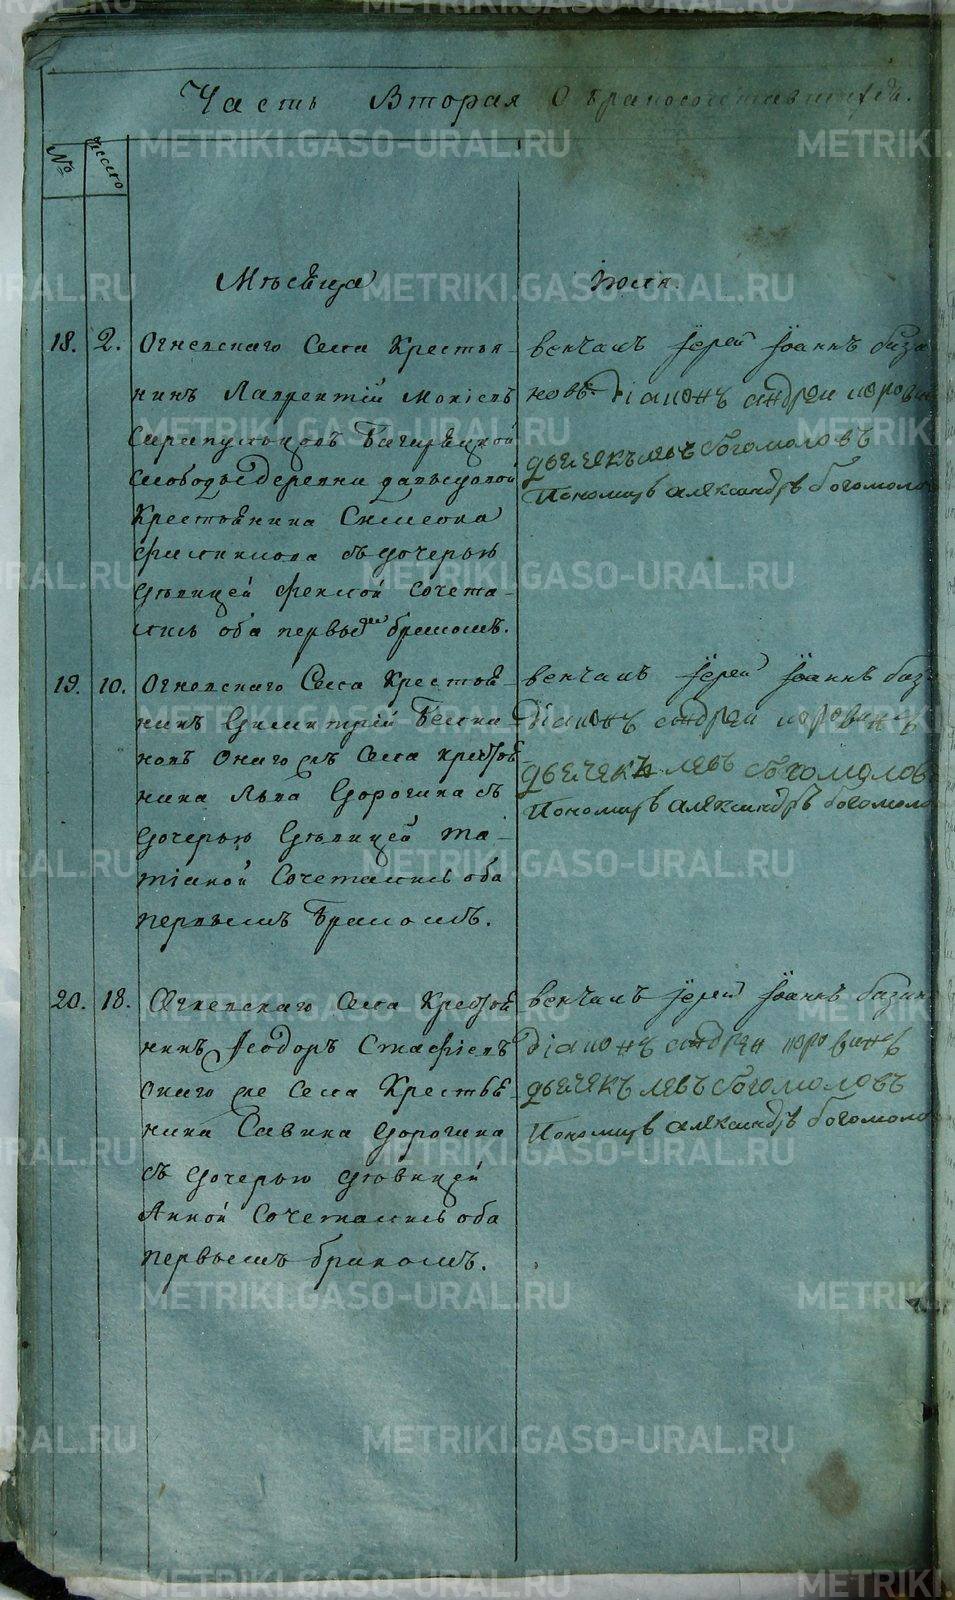 Часть Вторая О бракосочетавшихся.
№
Число
Мѣсѣца
Июля.
18. 2.
Огневскаго Села Крестья
нинъ Лаврентій Моисѣевъ
Багаряцкой
слободы деревни
Крестьянина Симеона
Филимона съ дочерью
дѣвицей Феклой Сочета
лись оба первые бракомъ.
венчалъ іерей Іоаннъ база
новъ діаконъ андреи
дьячекъ левъ богомоловъ
Пономарь александръ богомоло
19. 10.
Огневскаго Села Крестья
нинъ Димитрій
онаго же Села крестья
нина Льва Дорогина съ
дочерью дѣвицей Та
тіаной Сочетались оба
первымъ бракомъ.
венчалъ іерей Іоаннъ баз
діаконъ андреи
дьячекъ левъ богомолов
Пономарь александръ богомоло
20. 18.
Огневскаго Села Крестья
нинъ Ѳеодоръ
онаго же Села Крестья
нина Савина Дорогина
съ дочерью дѣвицей
Анной Сочетались оба
первымъ бракомъ.
венчалъ іерей Іоаннъ базан
діаконъ андреи
дьячекъ левъ богомоловъ
Пономарь александръ богомоло
METRIKI.GASO-URAL.RU